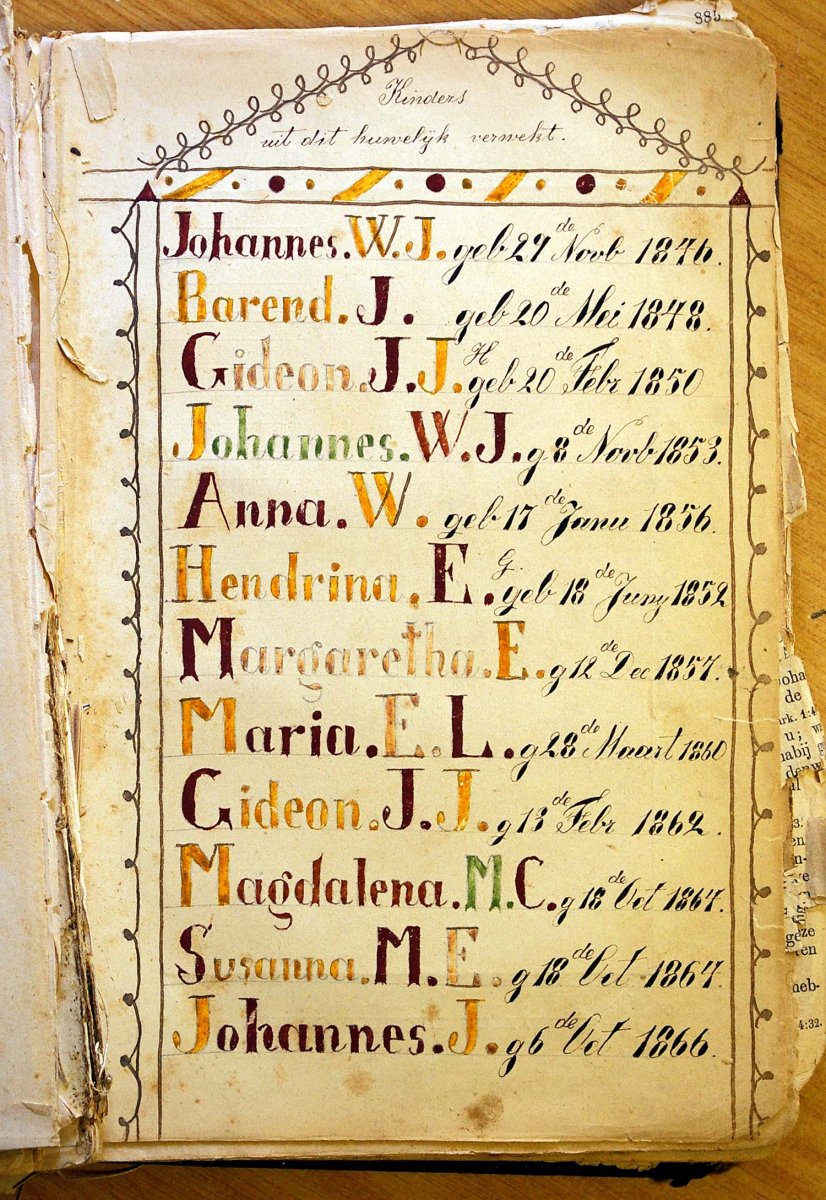 885
Kinders
uit dit huwelijk verwekt.
Johannes. W. J. geb 27de Novb 1846.
Barend. J. geb 20de Mei 1848.
Gideon. J. J. H geb 20de Febr 1850
Johannes. W. J. g 8de Novb 1853.
Anna. W. geb 17de Janu 1856.
Hendrina. E. G. geb 18de Juny 1852
Margaretha. E. g 12de Dec 1857.
Maria. E. L. g 28de Maart 1860
Gideon. J. J. g 13de Febr 1862.
Magdalena. M. C. g 18de Oct 1864.
Susanna. M. E. g 18de Oct 1864.
Johannes. J. g 6de Oct 1866.
oha
de
ark. 1:4
u;
habij
geze
ten
heb-
4:32.